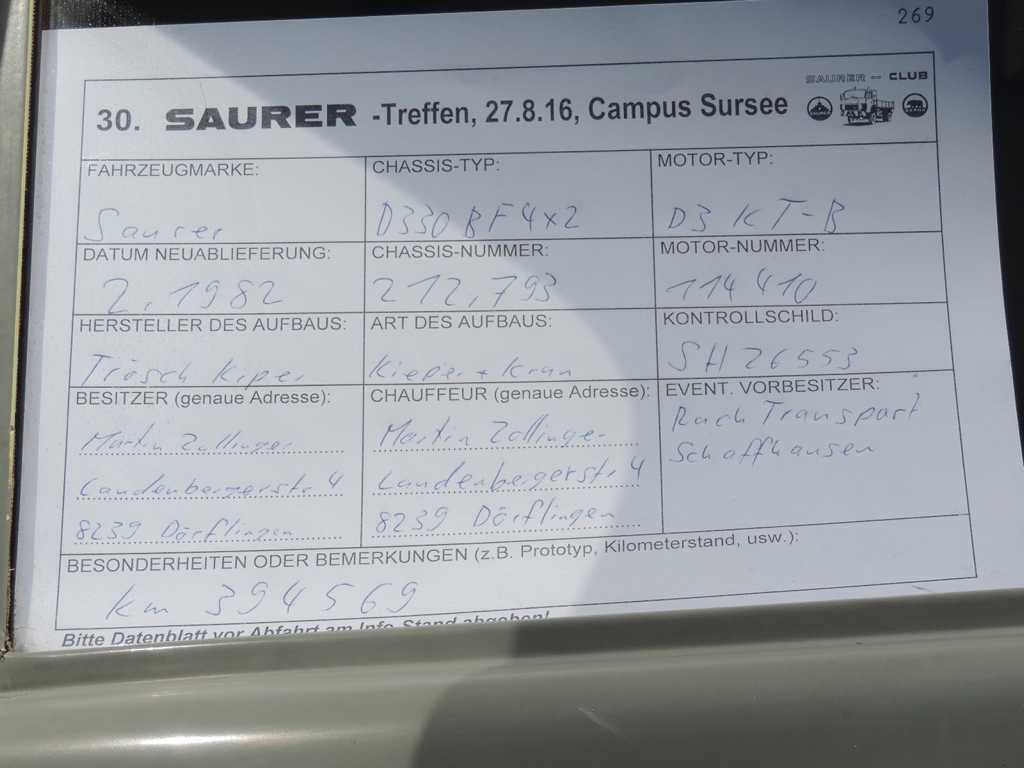 269
SAURER - CLUB
30. SAURER -Treffen, 27.8.16, Campus Sursee
FAHRZEUGMARKE:
Saurer
CHASSIS-TYP:
D330 BF 4x2
MOTOR-TYP:
D3 KT-B
DATUM NEUABLIEFERUNG:
2, 1982
CHASSIS-NUMMER:
212,793
MOTOR-NUMMER:
114410
HERSTELLER DES AUFBAUS:
Trösch Kiper
ART DES AUFBAUS:
Kieper + Kran
KONTROLLSCHILD:
SH 26553
BESITZER (genaue Adresse):
Martin Zollinger
Landenbergerstr 4
8239 Dörflingen
CHAUFFEUR (genaue Adresse):
Martin Zollinger
Landenbergerstr 4
8239 Dörflingen
EVENT. VORBESITZER:
Rach Transport
Schaffhausen
BESONDERHEITEN ODER BEMERKUNGEN (z.B. Prototyp, Kilometerstand, usw.):
Km 394569
Bitte Datenblatt vor Abfahrt am Info-Stand abgeben!